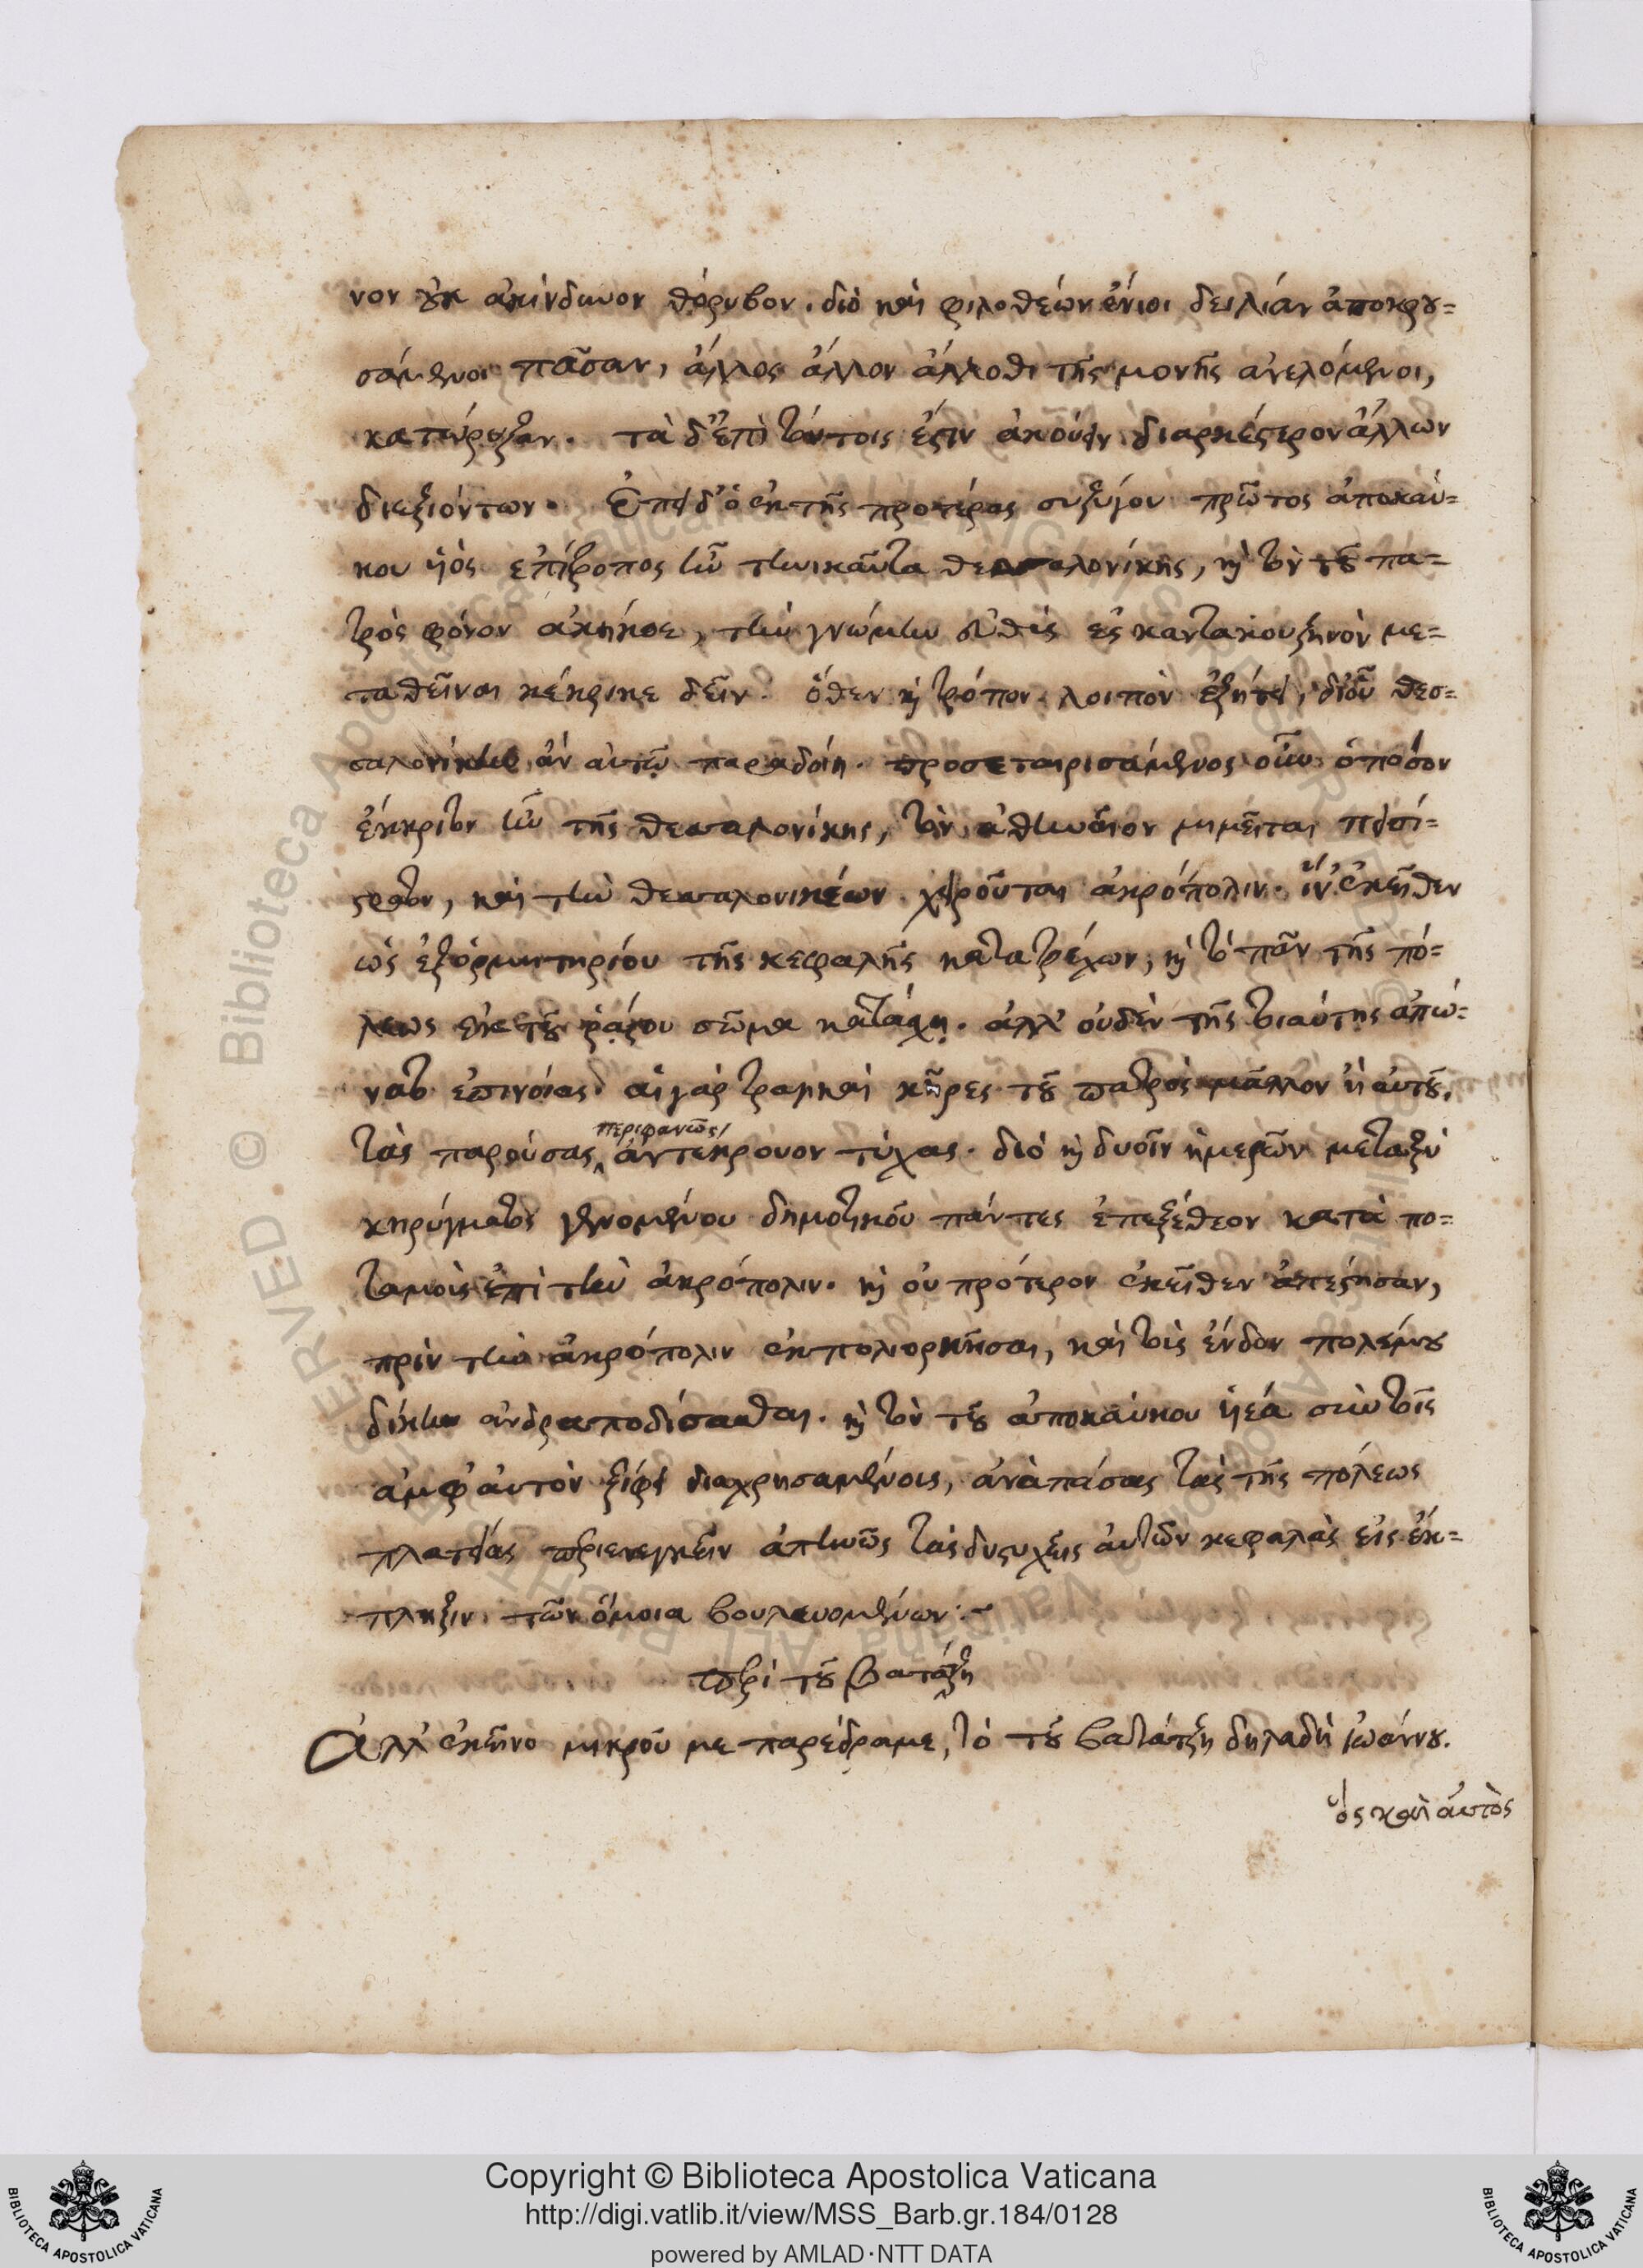 νον οὐκ ἀκίνδυνον θόρυβον. διὸ καὶ φιλοθέων ἔνιοι δειλίαν ἀποκρου=
σάμενοι πᾶσαν, ἄλλος ἄλλον ἄλλοθι τῆς μονῆς ἀνελόμενοι,
κατώρυξαν. τὰ δ' ἐπὶ τούτοις ἔστιν ἀκούειν διαρκέστερον ἄλλων
διεξιόντων. Ἐπεὶ δ' ὁ ἐκ τῆς προτέρας συζύγου πρῶτος ἀποκαύ=
κου υἱὸς ἐπίτροπος ὢν τηνικαῦτα θεσσαλονίκης, καὶ τὸν τοῦ πα=
τρὸς φόνον ἀκήκοε, τὴν γνώμην εὐθὺς ἐς καντακουζηνὸν με=
ταθεῖναι κέκρικε δεῖν. ὅθεν καὶ τρόπον λοιπὸν ἐζήτει, δι' οὗ θεσ=
σαλονίκην ἂν αὐτῷ παραδοίη. προσεταιρισάμενος οὖν ὁπόσον
ἔκκριτον ἦν τῆς θεσσαλονίκης, τὸν ἀθηναῖον μιμεῖται πεισί=
στρατον, καὶ τὴν θεσσαλονικέων χειροῦται ἀκρόπολιν. ἵν' ἐκεῖθεν
ὡς ἐξ ὁρμητηρίου τῆς κεφαλῆς κατατρέχων, καὶ τὸ πᾶν τῆς πό=
λεως ἐκ τοῦ ῥάστου σῶμα κατάσχῃ. ἀλλ' οὐδὲν τῆς τοιαύτης ἀπώ=
νατο ἐπινοίας. αἱ γὰρ τραγικαὶ κῆρες τοῦ πατρὸς μᾶλλον ἢ αὐτοῦ,
τὰς παρούσας περιφανῶς ἀντέκρουον τύχας. διὸ καὶ δυοῖν ἡμερῶν μεταξὺ
κηρύγματος γενομένου δημοτικοῦ πάντες ἐπεξέθεον κατὰ πο=
ταμοὺς ἐπὶ τὴν ἀκρόπολιν. καὶ οὐ πρότερον ἐκεῖθεν ἀπέστησαν,
πρὶν τὴν ἀκρόπολιν ἐκπολιορκῆσαι, καὶ τοὺς ἔνδον πολέμου
δίκην ἀνδραποδίσασθαι. καὶ τὸν τοῦ ἀποκαύκου υἱέα σὺν τοῖς
ἀμφ' αὐτὸν ξίφει διαχρησαμένοις, ἀνὰ πάσας τὰς τῆς πόλεως
πλατείας περιενεγκεῖν ἀπηνῶς τὰς δυστυχεῖς αὐτῶν κεφαλὰς εἰς ἔκ=
πληξιν τῶν ὅμοια βουλευομένων:~
περὶ τοῦ βατάτζη
Ἀλλ' ἐκεῖνο μικροῦ με παρέδραμε, τὸ τοῦ βατάτζη δηλαδὴ ἰωάννου.
ὃς καὶ αὐτὸς
Copyright © Biblioteca Apostolica Vaticana
http://digi.vatlib.it/view/MSS_Barb.gr.184/0128
powered by AMLAD·NTT DATA
BIBLIOTECA APOSTOLICA VATICANA
BIBLIOTECA APOSTOLICA VATICANA